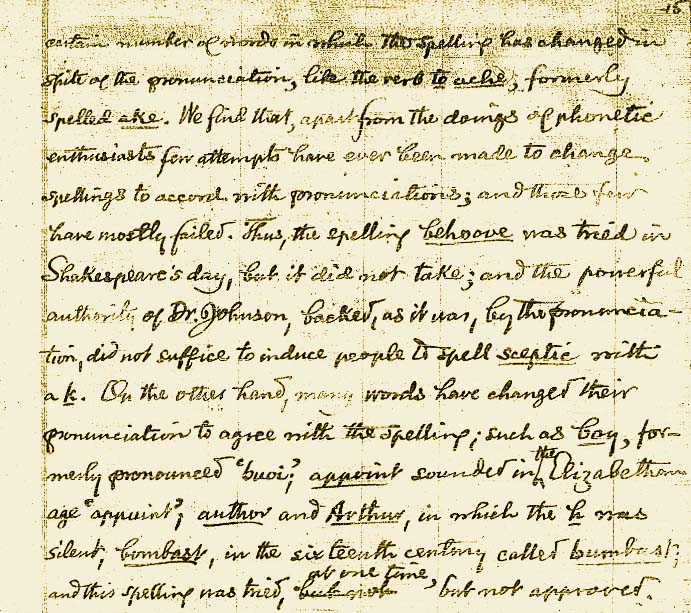 15
certain number of words in which the spelling has changed in
spite of the pronunciation, like the verb to ache, formerly
spelled ake. We find that, apart from the doings of phonetic
enthusiasts few attempts have ever been made to change
spellings to accord with pronunciations; and those few
have mostly failed. Thus, the spelling behoove was tried in
Shakespeare's day, but it did not take; and the powerful
authority of Dr. Johnson, backed, as it was, by the pronuncia-
tion, did not suffice to induce people to spell sceptic with
a k. On the other hand, many words have changed their
pronunciation to agree with the spelling; such as boy, for-
merly pronounced "buoi"; appoint sounded in the Elizabethan
age "appuint"; author and Arthur, in which the h was
silent; bombast, in the sixteenth century called bumbast;
and this spelling was tried, but not at one time, but not approved.